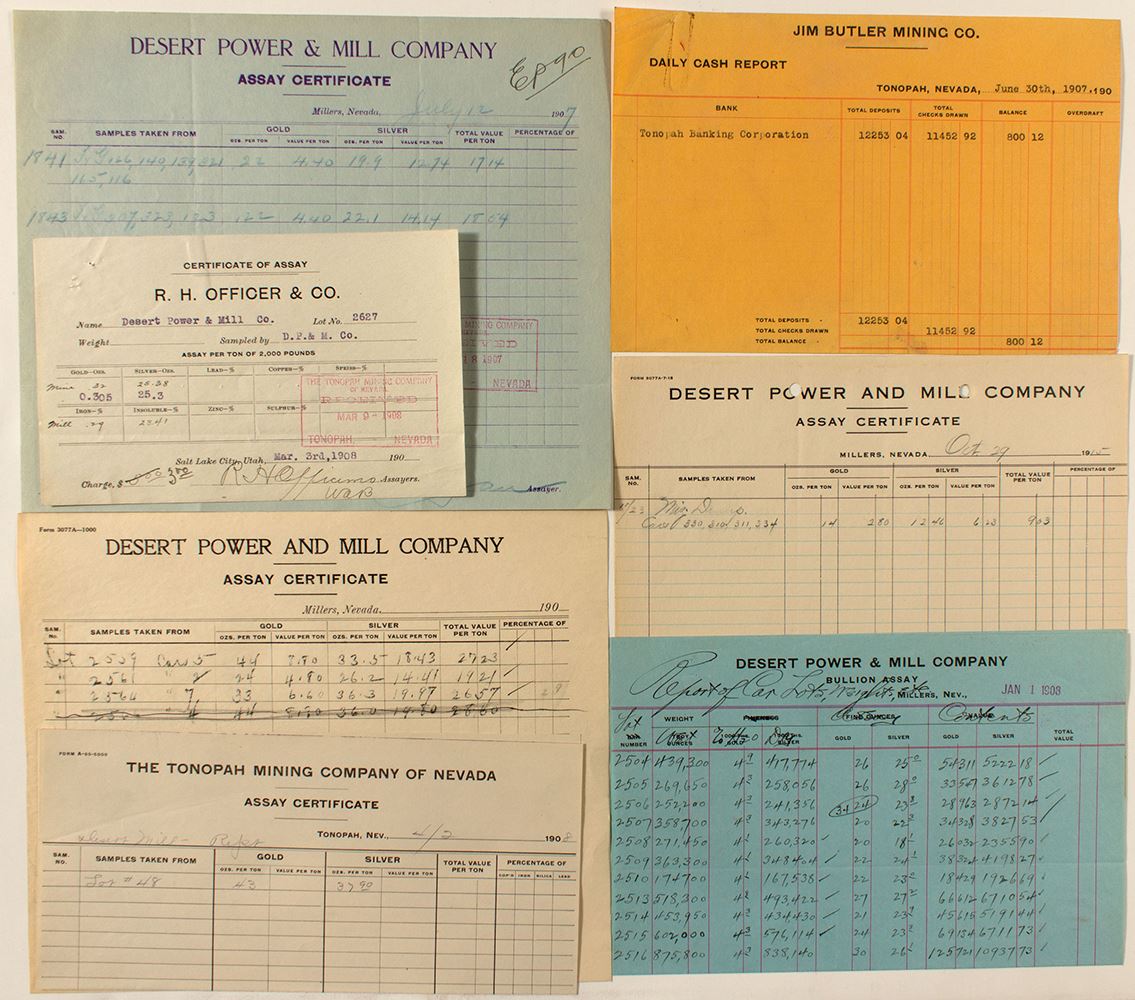 DESERT POWER & MILL COMPANY
ASSAY CERTIFICATE
Ep 90
Millers, Nevada, July 12 1907
SAM. NO. SAMPLES TAKEN FROM GOLD SILVER TOTAL VALUE PER TON PERCENTAGE OF
OZS. PER TON VALUE PER TON OZS. PER TON VALUE PER TON
1841 140, 139, 321 22 4.40 19.9 12.74 17.14
165, 116
1843 323, 123 .22 4.40 22.1 14.14 18.54
MINING COMPANY
1907
NEVADA
Assayer.
CERTIFICATE OF ASSAY
R. H. OFFICER & CO.
Name Desert Power & Mill Co. Lot No. 2627
Weight Sampled by D.P.& M. Co.
ASSAY PER TON OF 2,000 POUNDS
GOLD-OZS. SILVER-OZS. LEAD-% COPPER-% SPEISS-%
Mine .32 25.38
0.305 25.3
IRON-% INSOLUBLE-% ZINC-% SULPHUR-%
Mill .29 23.41
THE TONOPAH MINING COMPANY
OF NEVADA
RECEIVED
MAR 9 - 1908
TONOPAH, NEVADA
Salt Lake City, Utah, Mar. 3rd, 1908 190
Charge, $ 3.00 R H Officer & Co Assayers.
JIM BUTLER MINING CO.
DAILY CASH REPORT
TONOPAH, NEVADA, June 30th, 1907. 190
BANK TOTAL DEPOSITS TOTAL CHECKS DRAWN BALANCE OVERDRAFT
Tonopah Banking Corporation 12253 04 11452 92 800 12
TOTAL DEPOSITS - 12253 04
TOTAL CHECKS DRAWN 11452 92
TOTAL BALANCE - 800 12
FORM 3077A-7-15
DESERT POWER AND MILL COMPANY
ASSAY CERTIFICATE
MILLERS, NEVADA, Oct 29 1915
SAM. NO. SAMPLES TAKEN FROM GOLD SILVER TOTAL VALUE PER TON PERCENTAGE OF
OZS. PER TON VALUE PER TON OZS. PER TON VALUE PER TON
Cars 330, 310, 311, 334 14 2 80 12 46 6 23 9 03
Form 3077A-1000
DESERT POWER AND MILL COMPANY
ASSAY CERTIFICATE
Millers, Nevada, 190
SAM. No. SAMPLES TAKEN FROM GOLD SILVER TOTAL VALUE PER TON PERCENTAGE OF
OZS. PER TON VALUE PER TON OZS. PER TON VALUE PER TON
Lot 2559 Cars 5 44 8.80 33.5 18.43 27 23
" 2561 " 8 24 4.80 26.2 14.41 19 21
" 2564 " 7 33 6.60 36.3 19.97 26 57
" 4 44 8.80 36.0 19.80 28 60
FORM A-95-5000
THE TONOPAH MINING COMPANY OF NEVADA
ASSAY CERTIFICATE
TONOPAH, NEV., 4/2 1908
SAM. NO. SAMPLES TAKEN FROM GOLD SILVER TOTAL VALUE PER TON PERCENTAGE OF
OZS. PER TON VALUE PER TON OZS. PER TON VALUE PER TON COP'R IRON SILICA LEAD
Lot # 48 43 37.90
DESERT POWER & MILL COMPANY
BULLION ASSAY
Report of Car Lots, Weights, etc MILLERS, NEV., JAN 1 1908
Lot WEIGHT FINENESS Assay FINE OUNCES Contents VALUE TOTAL VALUE
NUMBER Wet TROY OUNCES GOLD Dry SILVER GOLD SILVER GOLD SILVER
2504 439,300 417,774 26 25 54311 522218
2505 269,650 258,056 26 28 33547 361278
2506 252,200 241,356 24 23 28963 287214
2507 358,700 343,276 20 22 34328 382753
2508 271,450 260,320 20 18 26032 235590
2509 363,300 348404 22 24 38324 419827
2510 174,700 167,538 22 23 18429 192669
2513 518,300 493,422 27 27 66612 671054
2514 453,950 434430 21 23 45615 519144
2515 602,000 576,114 24 23 69134 671173
2516 875,800 838,140 30 26 125721 1093773